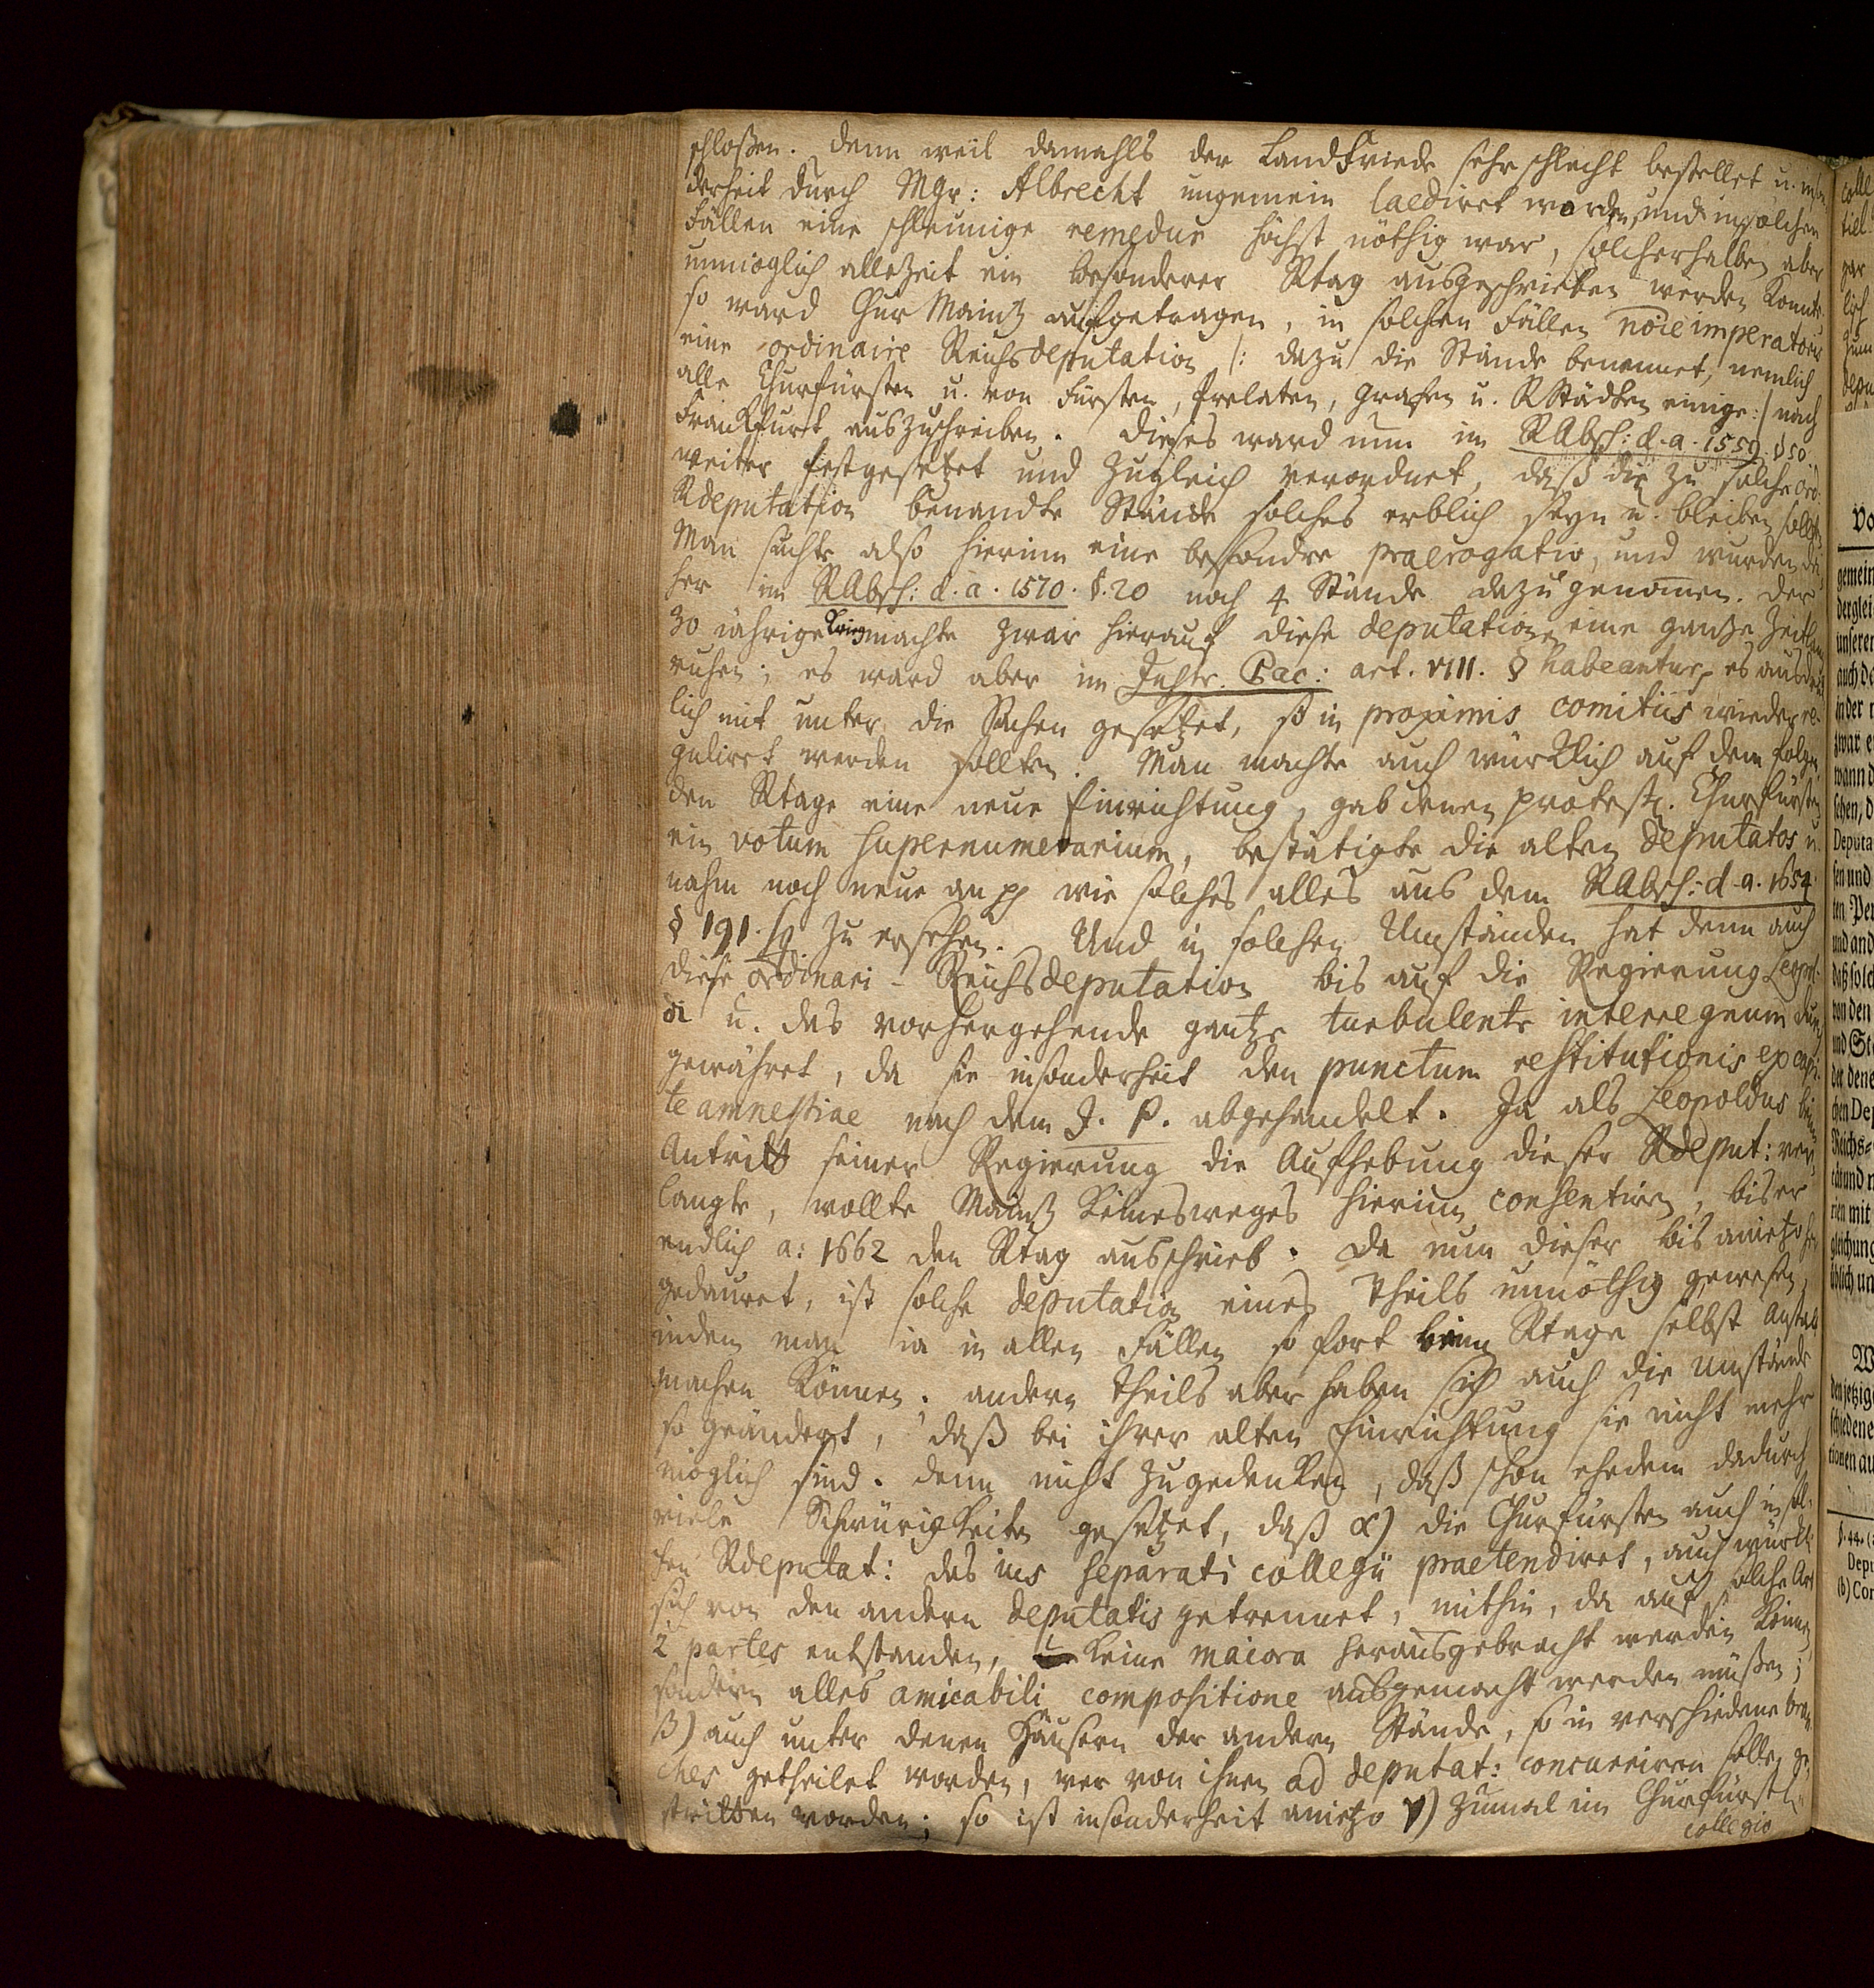 schloßen. Denn weil damahls der Landfriede sehr schlecht bestellet u. inson-
derheit durch Mgr: Albrecht ungemein laedirct worden, und in solchen
Fällen eine schleunige remedur höchst nöthig war, solcherhalben aber
unmöglich allezeit ein besonderer Rtag ausgeschrieben werden konnte
so ward Chur Maintz aufgetragen, in solchen Fällen noie imperatoris
eine ordinaire Reichsdeputation /: dazu die Stände benennet, nemlich
alle Churfürsten u. von Fürsten, Prelaten, Grafen u. RStädten einige :/ nach
Franckfurt auszuschreiben. Dieses ward nun im RAbsch: d. a. 1559. § 50
weiter festgesetzet und zugleich verordnet, daß die zu solcher ord.
Rdeputation benandte Stände solches erblich seyn u. bleiben sollten
Man suchte also hierinn eine besondre praerogativ, und wurden da-
her im RAbsch: d. a. 1570. §. 20 noch 4 Stände dazu genomen. Der
30 jährige Krieg machte zwar hierauf diese deputationen eine gantze Zeitlang
ruhen; es ward aber im Instr. Pac: art. VIII. § habeantur, es ausdrück
lich mit unter die Sachen gesetzet, so in proximis comitiis wieder re-
gulirct werden sollten. Man machte auch würcklich auf dem folgen
den Rtage eine neue Einrichtung, gab denen protest. Churfürsten
ein votum supernumerarium, bestätigte die alten deputatos u.
nahm noch neue an pp wie solches alles aus dem RAbsch: d. a. 1654.
§ 191. sq. zu ersehen. Und in solchen Umständen hat denn auch
diese ordinari-Reichsdeputation bis auf die Regierung Leopol-
di u. das vorhergehende gantze turbulente interregnum durch
gewähret, da sie insonderheit den punctum restitutionis ex capi-
te amnestiae nach dem J. P. abgehandelt. Ja als Leopoldus beim
Antritt seiner Regierung die Aufhebung dieser Rdeput: ver-
langte, wollte Maintz keinesweges hierinn consentiren, bis er
endlich a: 1662 den Rtag ausschrieb. Da nun dieser bis anietzo
gedauret, ist solche deputation eines Theils unnöthig gewesen,
indem man ia in allen Fällen so fort beim Rtage selbst Anstalt
machen können; andern theils aber haben sich auch die Umstände
so geändert, daß bei ihrer alten Einrichtung sie nicht mehr
möglich sind. Denn nicht zugedencken, daß schon ehedem dadurch
viele Schwürigkeiten gesetzet, daß α) die Churfürsten auch in sol-
chen Rdeputat: das ius separati collegii praetendiret, auch würckl.
sich von den andern deputatis getrennet, mithin, da auf solche Art
2 partes entstanden, keine maiora herausgebracht werden können,
sondern alles amicabili compositione ausgemacht werden müßen;
β) auch unter denen Häusern der andern Stände, so in verschiedene bran-
ches getheilet worden, wer von ihnen ad deputat: concurriren solle, ge-
stritten worden; so ist insonderheit anietzo γ) zumal im Churfürstl.
collegio